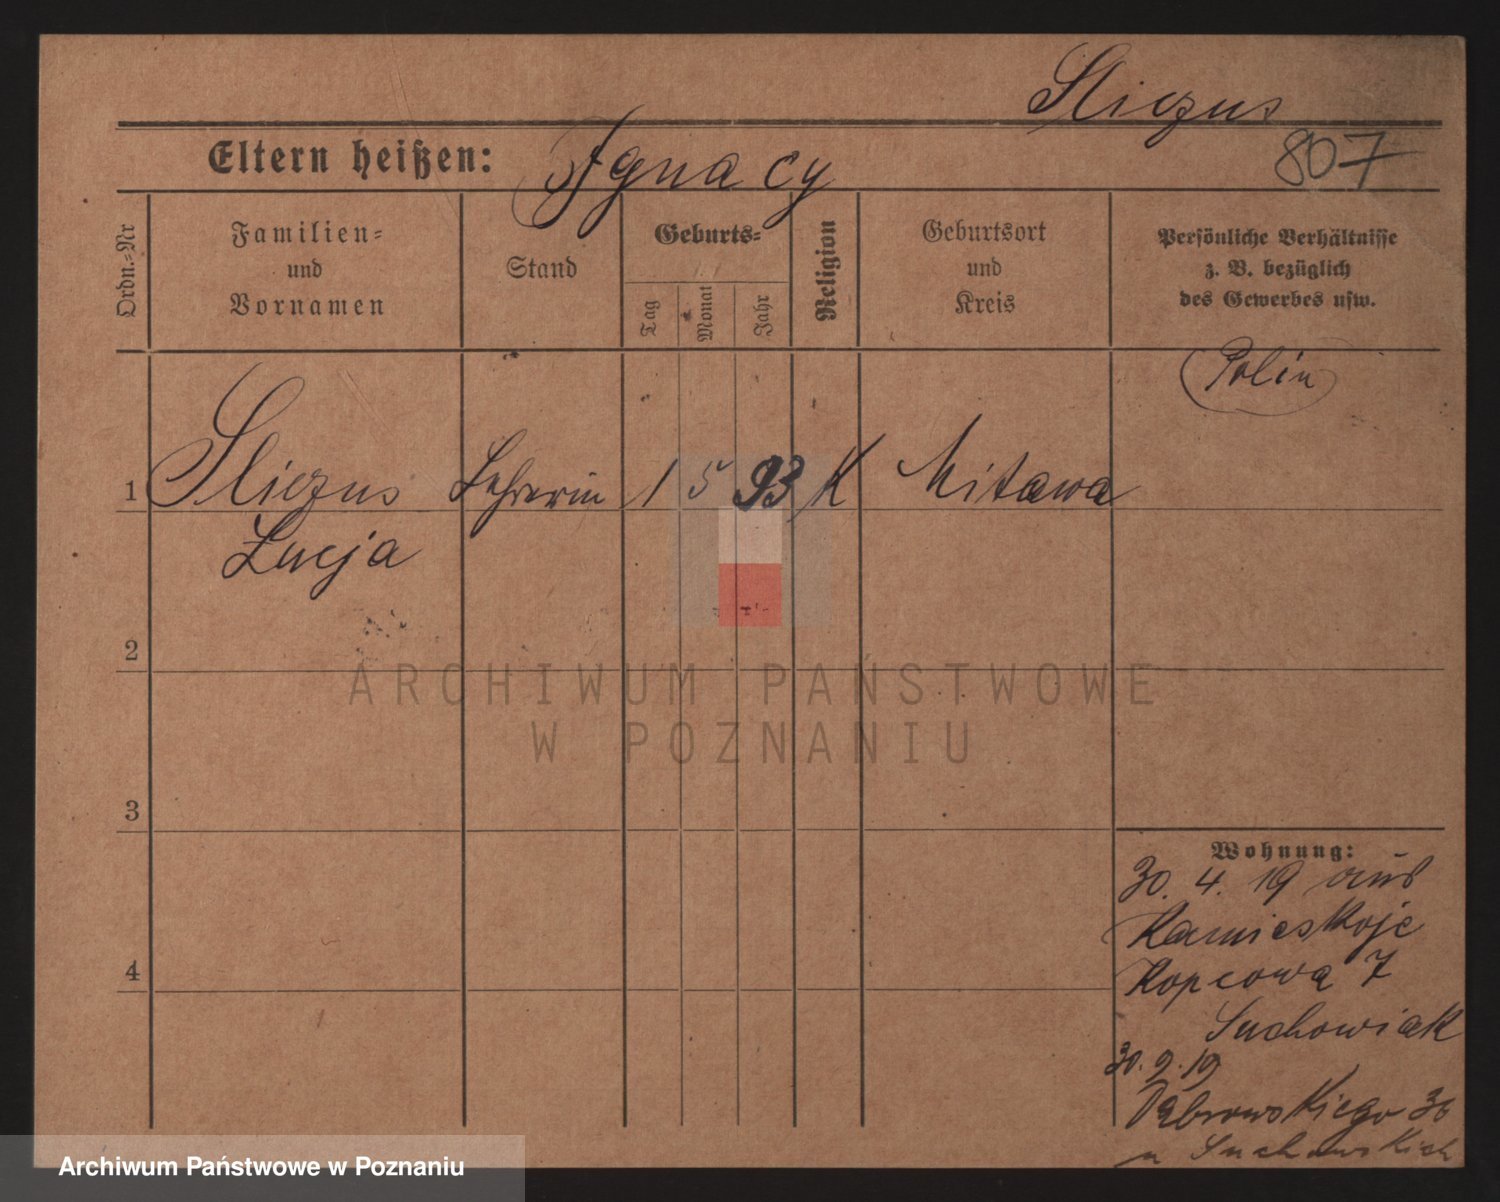 Sliczus
Eltern heißen: Ignacy
807
Ordn.-Nr
Familien-
und
Vornamen
Stand
Geburts-
Tag
Monat
Jahr
Religion
Geburtsort
und
Kreis
Persönliche Verhältnisse
z. B. bezüglich
des Gewerbes usw.
Polin
1 Sliczus Lehrerin 1 5 93 K Mitawa
Lucja
2
3
4
Wohnung:
30. 4. 19 aus
Kopcowa 7
Suchowiak
30. 9. 19
Dąbrowskiego
u
ARCHIWUM PAŃSTWOWE
W POZNANIU
Archiwum Państwowe w Poznaniu